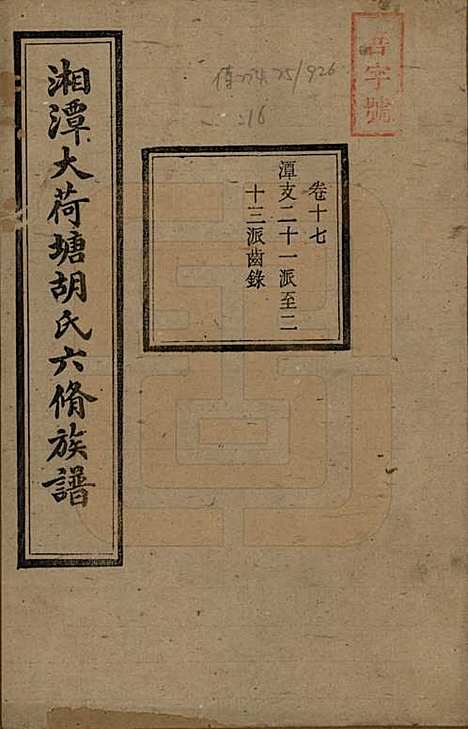 湘潭大荷塘胡氏六脩族譜
卷十七
潭支二十一派至二
十三派齒錄
字號
25/926
16